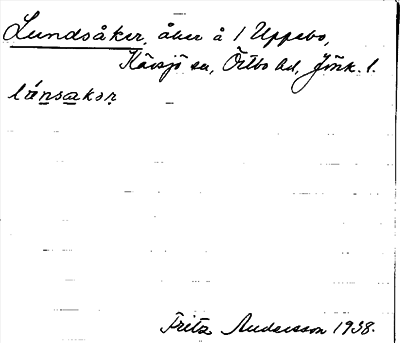 Lundsåker, åker å 1 Uppebo,
Kävsjö sn, Östbo hd, Jönk. l.
lánsakər
Fritz Andersson 1938.